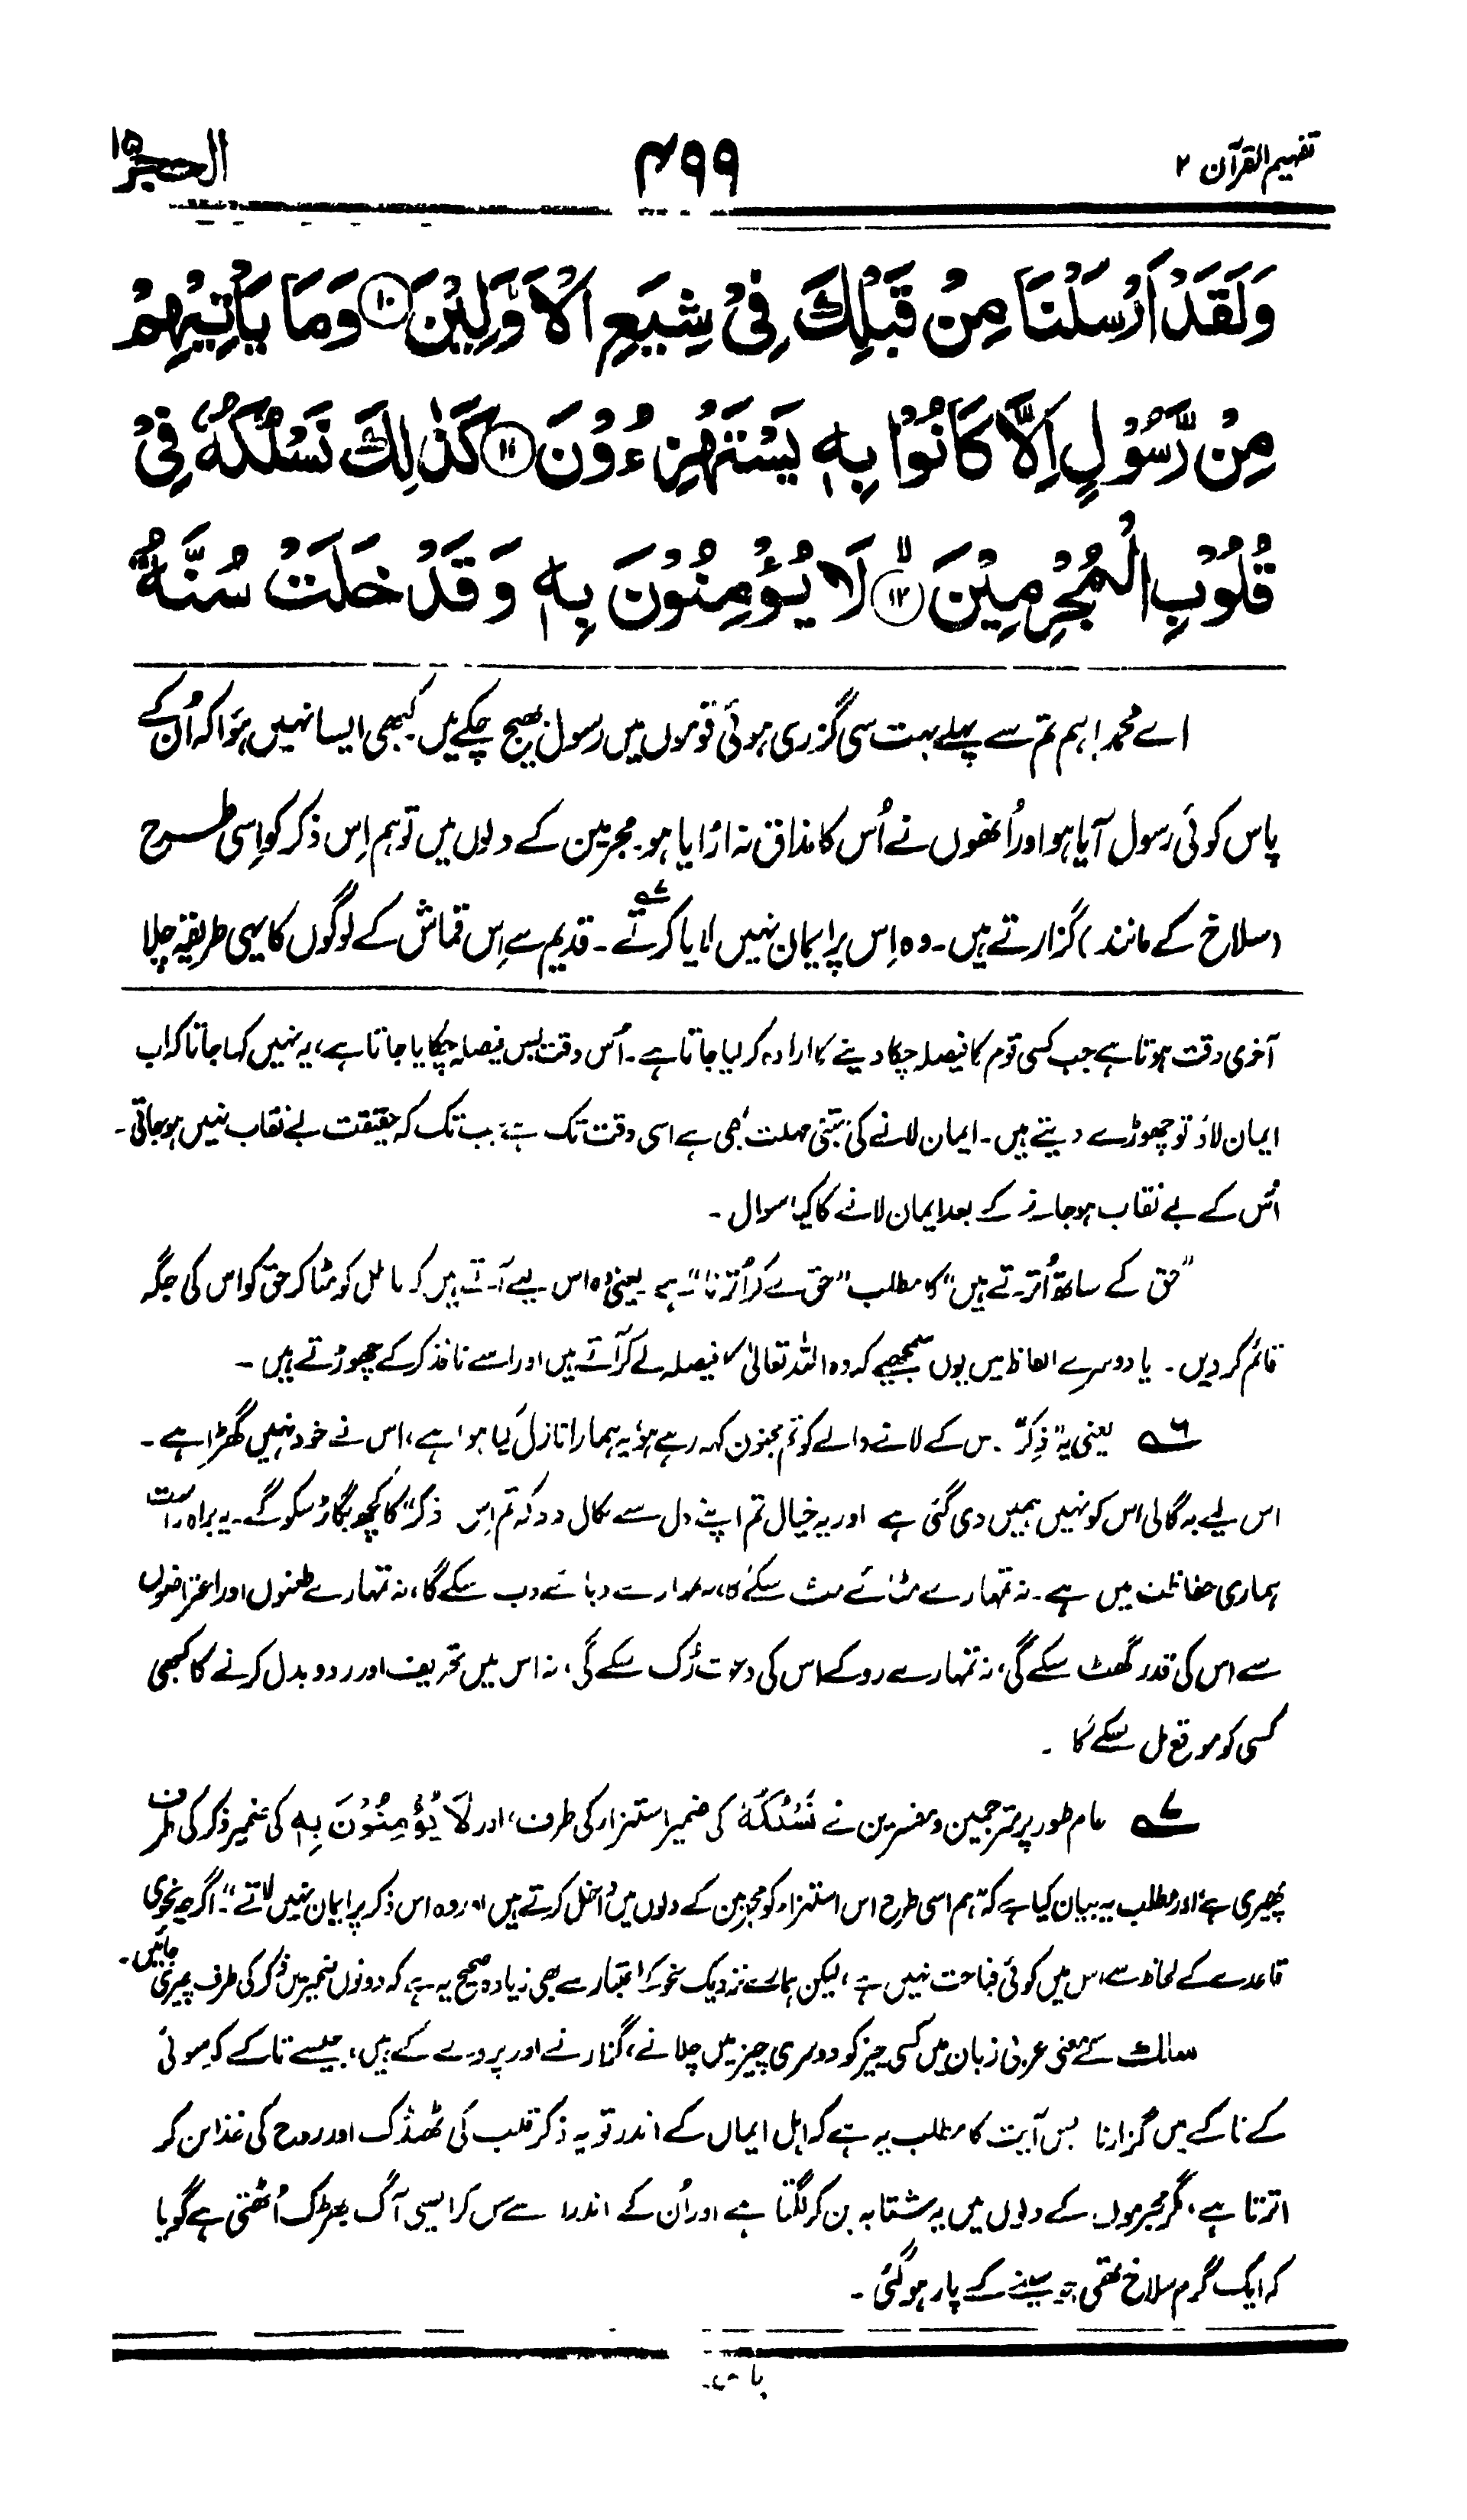 تفہیم القرآن ۲
۴۹۹
الحجر ۱۵
وَلَقَدْ اَرْسَلْنَا مِنْ قَبْلِكَ فِیْ شِیَعِ الْاَوَّلِیْنَ ⑩ وَمَا یَاْتِیْهِمْ
مِّنْ رَّسُوْلٍ اِلَّا كَانُوْا بِهٖ یَسْتَهْزِءُوْنَ ⑪ كَذٰلِكَ نَسْلُكُهٗ فِیْ
قُلُوْبِ الْمُجْرِمِیْنَ ⑫ۙ لَا یُؤْمِنُوْنَ بِهٖ وَقَدْ خَلَتْ سُنَّةُ
اے محمد! ہم تم سے پہلے بہت سی گزری ہوئی قوموں میں رسول بھیج چکے ہیں۔ کبھی ایسا نہیں ہوا کہ اُن کے
پاس کوئی رسول آیا ہو اور اُنھوں نے اُس کا مذاق نہ اڑایا ہو۔ مجرمین کے دلوں میں تو ہم اِس ذکر کو اِسی طرح
(سلاخ کے مانند) گزارتے ہیں۔ وہ اِس پر ایمان نہیں لایا کرتے۷؎۔ قدیم سے اِس قماش کے لوگوں کا یہی طریقہ چلا
آخری وقت ہوتا ہے جب کسی قوم کا فیصلہ چکا دینے کا ارادہ کر لیا جاتا ہے۔ اُس وقت بس فیصلہ چکایا جاتا ہے، یہ نہیں کہا جاتا کہ اب
ایمان لاؤ تو چھوڑے دیتے ہیں۔ ایمان لانے کی جتنی مہلت بھی ہے اسی وقت تک ہے جب تک کہ حقیقت بے نقاب نہیں ہو جاتی۔
اُس کے بے نقاب ہو جانے کے بعد ایمان لانے کا کیا سوال۔
"حق کے ساتھ اُترتے ہیں" کا مطلب "حق لے کر اُترنا" ہے۔ یعنی وہ اس لیے آتے ہیں کہ باطل کو مٹا کر حق کو اس کی جگہ
قائم کر دیں۔ یا دوسرے الفاظ میں یوں سمجھیے کہ وہ اللہ تعالیٰ کا فیصلہ لے کر آتے ہیں اور اسے نافذ کر کے چھوڑتے ہیں۔
۶؎ یعنی یہ "ذِکر" جس کے لانے والے کو تم مجنون کہہ رہے ہو، یہ ہمارا نازل کیا ہوا ہے، اس نے خود نہیں گھڑا ہے۔
اس لیے یہ گالی اس کو نہیں ہمیں دی گئی ہے۔ اور یہ خیال تم اپنے دل سے نکال دو کہ تم اِس "ذکر" کا کچھ بگاڑ سکو گے۔ یہ براہ راست
ہماری حفاظت میں ہے۔ نہ تمہارے مٹائے مٹ سکے گا، نہ تمہارے دبائے دب سکے گا، نہ تمہارے طعنوں اور اعتراضوں
سے اس کی قدر گھٹ سکے گی، نہ تمہارے روکے اس کی دعوت رُک سکے گی، نہ اس میں تحریف اور رد و بدل کرنے کا کبھی
کسی کو موقع مل سکے گا۔
۷؎ عام طور پر مترجمین و مفسرین نے نَسْلُكُهٗ کی ضمیر استہزاء کی طرف، اور لَا یُؤْمِنُوْنَ بِهٖ کی ضمیر ذکر کی طرف
پھیری ہے، اور مطلب یہ بیان کیا ہے کہ "ہم اسی طرح اس استہزاء کو مجرمین کے دلوں میں داخل کرتے ہیں اور وہ اس ذکر پر ایمان نہیں لاتے"۔ اگرچہ نحوی
قاعدے کے لحاظ سے اس میں کوئی قباحت نہیں ہے، لیکن ہمارے نزدیک نحو کے اعتبار سے بھی زیادہ صحیح یہ ہے کہ دونوں ضمیریں ذکر کی طرف پھیری جائیں۔
سلک کے معنی عربی زبان میں کسی چیز کو دوسری چیز میں چلانے، گزارنے اور پرونے کے ہیں، جیسے تاگے کو سوئی
کے ناکے میں گزارنا۔ پس آیت کا مطلب یہ ہے کہ اہل ایمان کے اندر تو یہ ذکر قلب کی ٹھنڈک اور روح کی غذا بن کر
اترتا ہے، مگر مجرموں کے دلوں میں یہ شتابہ بن کر لگتا ہے اور اُن کے اندر اسے سن کر ایسی آگ بھڑک اُٹھتی ہے گویا
کہ ایک گرم سلاخ تھی جو سینے کے پار ہو گئی۔